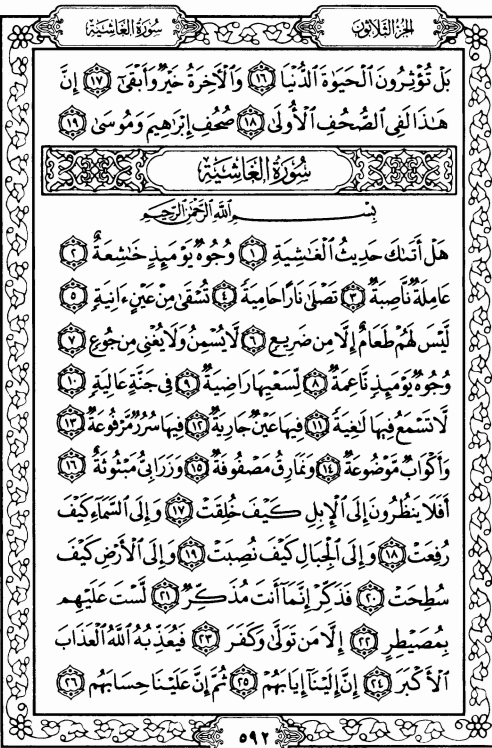 سُورَةُ الغَاشِيَةِ
الجُزْءُ الثَّلَاثُونَ
بَلْ تُؤْثِرُونَ ٱلْحَيَوٰةَ ٱلدُّنْيَا ۝١٦ وَٱلْأَخِرَةُ خَيْرٌ وَأَبْقَىٰٓ ۝١٧ إِنَّ
هَـٰذَا لَفِى ٱلصُّحُفِ ٱلْأُولَىٰ ۝١٨ صُحُفِ إِبْرَٰهِيمَ وَمُوسَىٰ ۝١٩
سُورَةُ الغَاشِيَةِ
بِسْمِ ٱللَّهِ ٱلرَّحْمَـٰنِ ٱلرَّحِيمِ
هَلْ أَتَىٰكَ حَدِيثُ ٱلْغَـٰشِيَةِ ۝١ وُجُوهٌ يَوْمَئِذٍ خَـٰشِعَةٌ ۝٢
عَامِلَةٌ نَّاصِبَةٌ ۝٣ تَصْلَىٰ نَارًا حَامِيَةً ۝٤ تُسْقَىٰ مِنْ عَيْنٍ ءَانِيَةٍ ۝٥
لَّيْسَ لَهُمْ طَعَامٌ إِلَّا مِن ضَرِيعٍ ۝٦ لَّا يُسْمِنُ وَلَا يُغْنِى مِن جُوعٍ ۝٧
وُجُوهٌ يَوْمَئِذٍ نَّاعِمَةٌ ۝٨ لِّسَعْيِهَا رَاضِيَةٌ ۝٩ فِى جَنَّةٍ عَالِيَةٍ ۝١٠
لَّا تَسْمَعُ فِيهَا لَـٰغِيَةً ۝١١ فِيهَا عَيْنٌ جَارِيَةٌ ۝١٢ فِيهَا سُرُرٌ مَّرْفُوعَةٌ ۝١٣
وَأَكْوَابٌ مَّوْضُوعَةٌ ۝١٤ وَنَمَارِقُ مَصْفُوفَةٌ ۝١٥ وَزَرَابِىُّ مَبْثُوثَةٌ ۝١٦
أَفَلَا يَنظُرُونَ إِلَى ٱلْإِبِلِ كَيْفَ خُلِقَتْ ۝١٧ وَإِلَى ٱلسَّمَآءِ كَيْفَ
رُفِعَتْ ۝١٨ وَإِلَى ٱلْجِبَالِ كَيْفَ نُصِبَتْ ۝١٩ وَإِلَى ٱلْأَرْضِ كَيْفَ
سُطِحَتْ ۝٢٠ فَذَكِّرْ إِنَّمَآ أَنتَ مُذَكِّرٌ ۝٢١ لَّسْتَ عَلَيْهِم
بِمُصَيْطِرٍ ۝٢٢ إِلَّا مَن تَوَلَّىٰ وَكَفَرَ ۝٢٣ فَيُعَذِّبُهُ ٱللَّهُ ٱلْعَذَابَ
ٱلْأَكْبَرَ ۝٢٤ إِنَّ إِلَيْنَآ إِيَابَهُمْ ۝٢٥ ثُمَّ إِنَّ عَلَيْنَا حِسَابَهُم ۝٢٦
٥٩٢